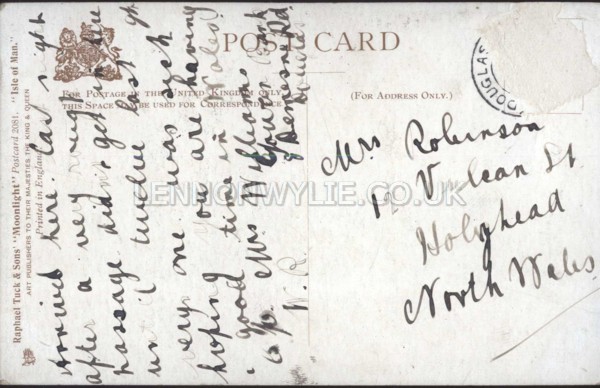 POST CARD
FOR POSTAGE IN THE UNITED KINGDOM ONLY
THIS SPACE MAY BE USED FOR CORRESPONDENCE
(FOR ADDRESS ONLY.)
DOUGLAS
Raphael Tuck & Sons' "Moonlight" Postcard 2081. "Isle of Man."
ART PUBLISHERS TO THEIR MAJESTIES THE KING & QUEEN
Printed in England
arrived here last night
after a very rough
passage didn't get in here
until twelve last
very me was sick
hoping you are having
a good time in Wales
C/o Mrs Williams
W. R.
Mrs Robinson
Vulcan St
Holyhead
North Wales
LENHORWYLIE.CO.UK